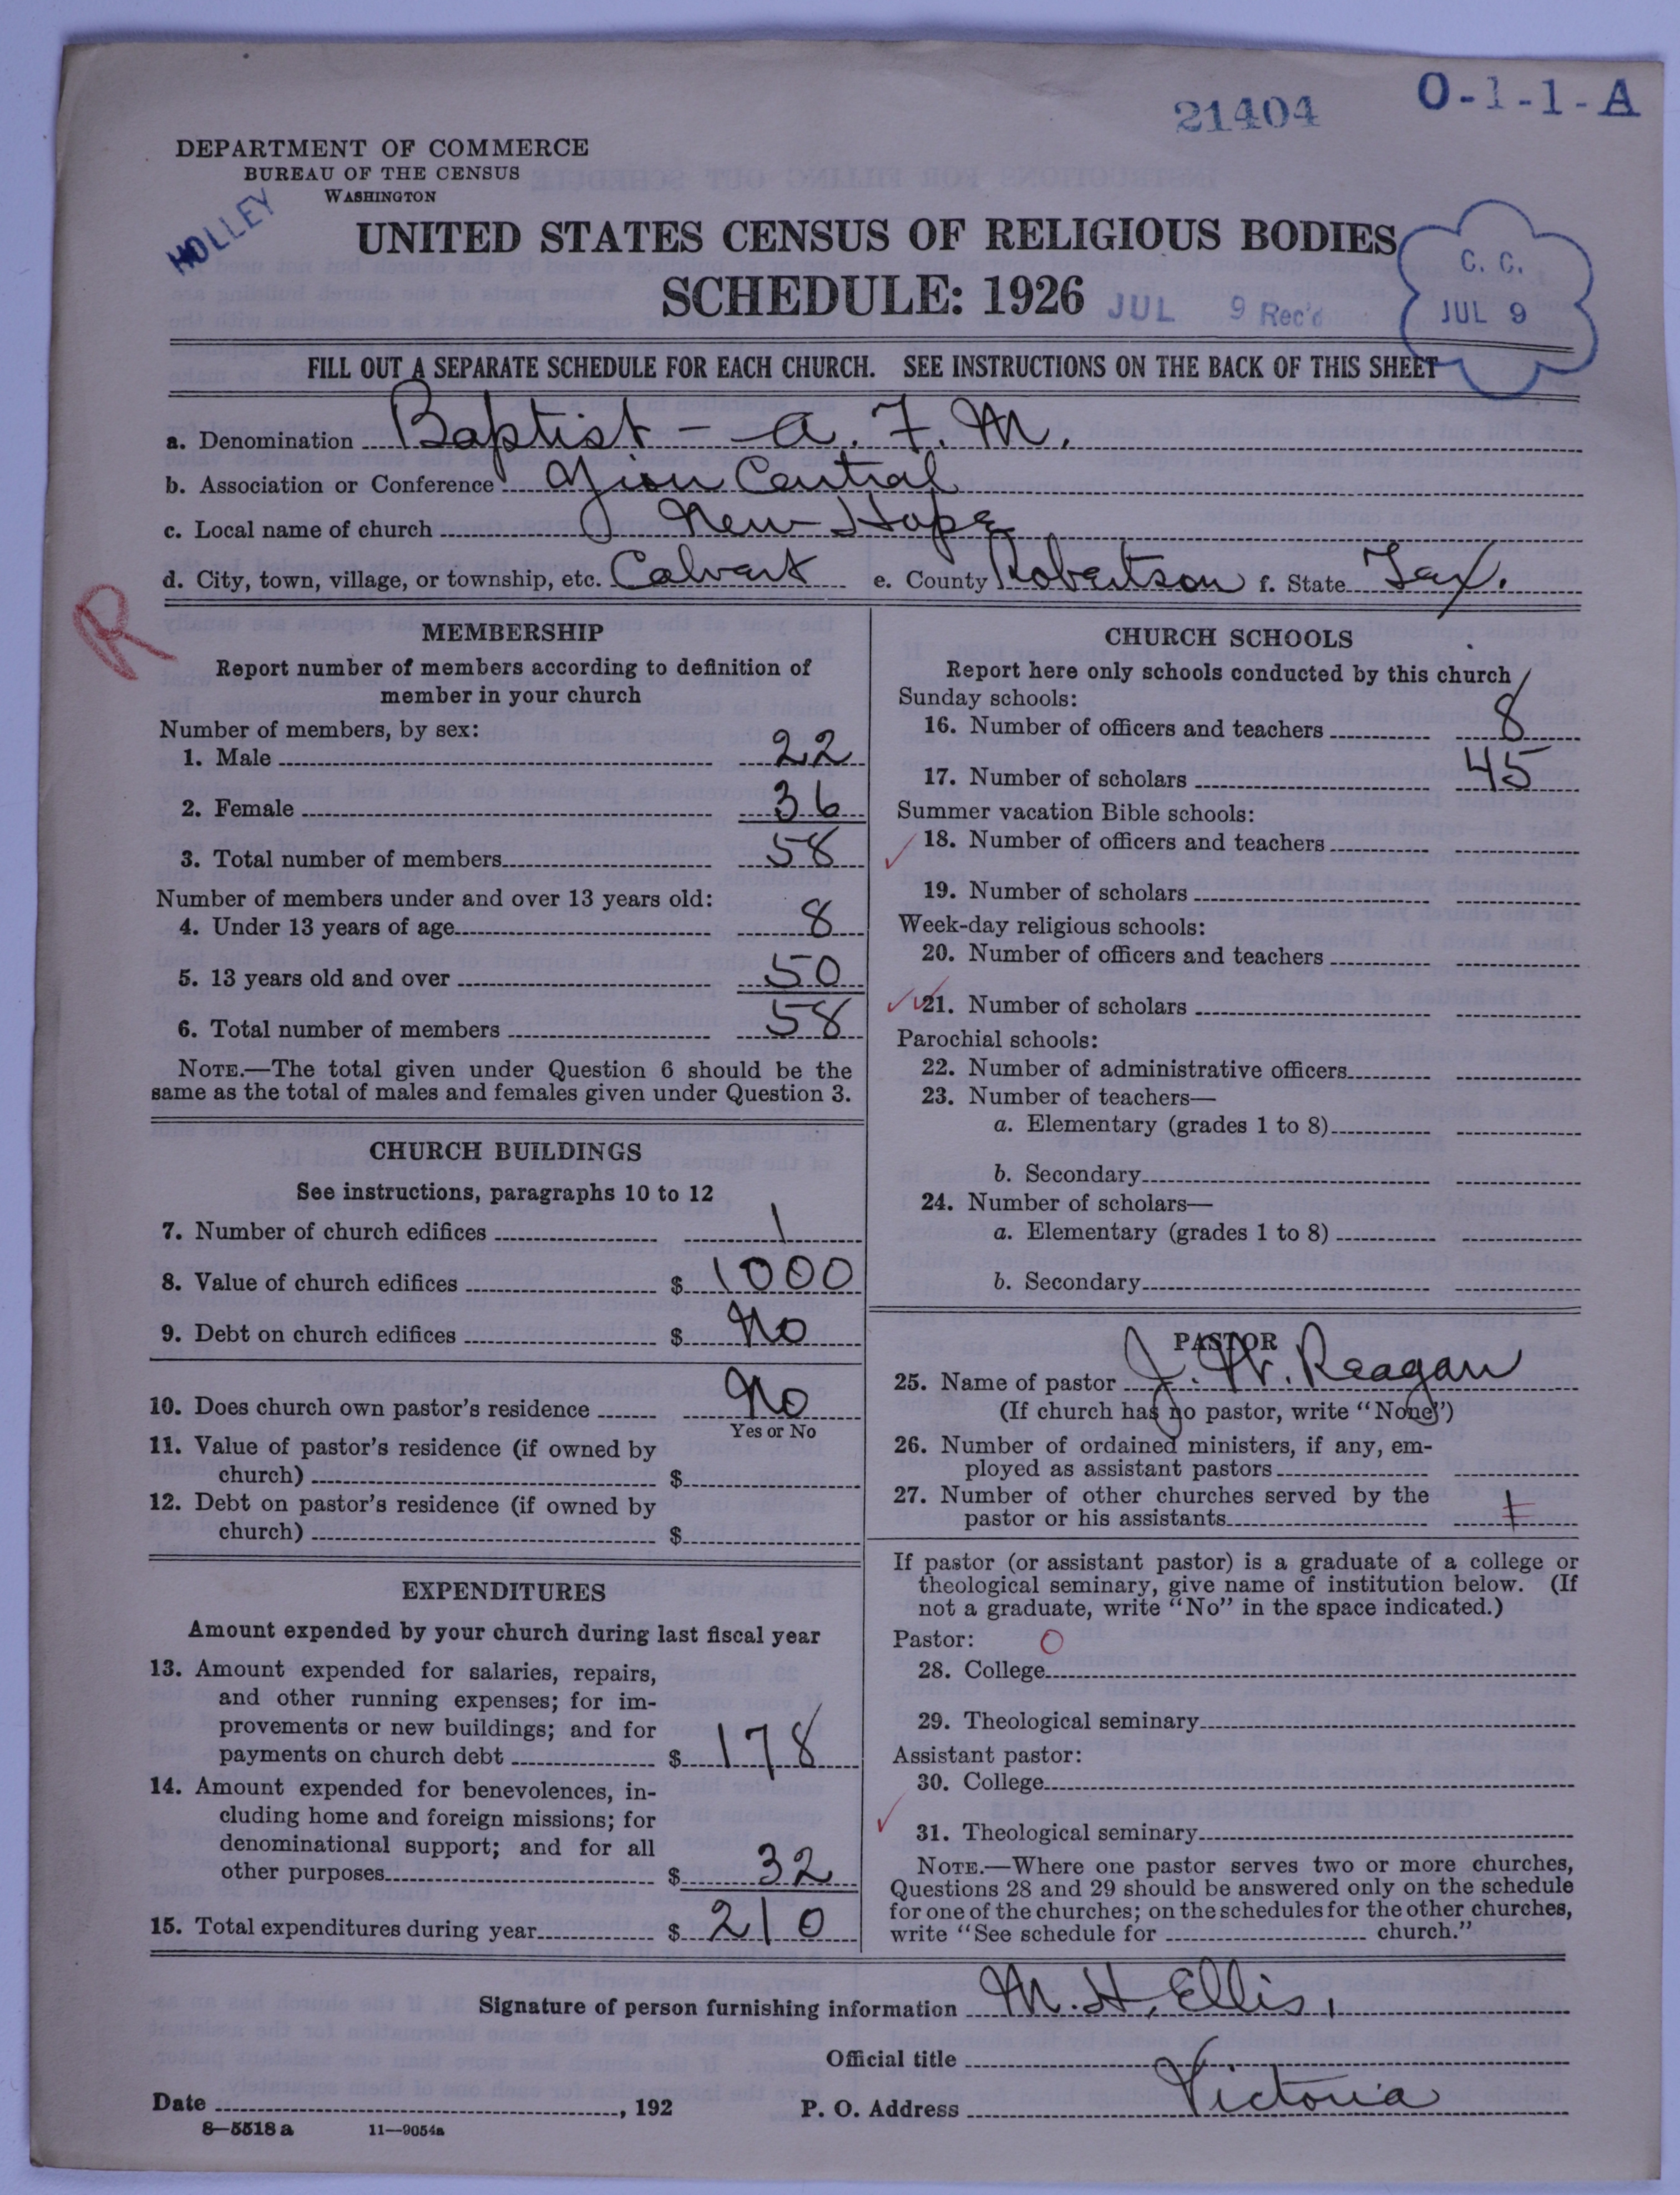 21404 O-1-1-A
DEPARTMENT OF COMMERCE
BUREAU OF THE CENSUS
WASHINGTON
HOLLEY
UNITED STATES CENSUS OF RELIGIOUS BODIES
SCHEDULE: 1926
JUL 9 Rec'd
C. C.
JUL 9
FILL OUT A SEPARATE SCHEDULE FOR EACH CHURCH. SEE INSTRUCTIONS ON THE BACK OF THIS SHEET
a. Denomination Baptist - A. F. M.
b. Association or Conference Zion Central
c. Local name of church New Hope
d. City, town, village, or township, etc. Calvert e. County Robertson f. State Tex.
R
MEMBERSHIP
Report number of members according to definition of
member in your church
Number of members, by sex:
1. Male 22
2. Female 36
3. Total number of members 58
Number of members under and over 13 years old:
4. Under 13 years of age 8
5. 13 years old and over 50
6. Total number of members 58
NOTE.—The total given under Question 6 should be the
same as the total of males and females given under Question 3.
CHURCH BUILDINGS
See instructions, paragraphs 10 to 12
7. Number of church edifices 1
8. Value of church edifices $ 1000
9. Debt on church edifices $ No
10. Does church own pastor's residence No
Yes or No
11. Value of pastor's residence (if owned by
church) $
12. Debt on pastor's residence (if owned by
church) $
EXPENDITURES
Amount expended by your church during last fiscal year
13. Amount expended for salaries, repairs,
and other running expenses; for im-
provements or new buildings; and for
payments on church debt $ 178
14. Amount expended for benevolences, in-
cluding home and foreign missions; for
denominational support; and for all
other purposes $ 32
15. Total expenditures during year $ 210
CHURCH SCHOOLS
Report here only schools conducted by this church
Sunday schools:
16. Number of officers and teachers 8
17. Number of scholars 45
Summer vacation Bible schools:
18. Number of officers and teachers
19. Number of scholars
Week-day religious schools:
20. Number of officers and teachers
21. Number of scholars
Parochial schools:
22. Number of administrative officers
23. Number of teachers—
a. Elementary (grades 1 to 8)
b. Secondary
24. Number of scholars—
a. Elementary (grades 1 to 8)
b. Secondary
PASTOR
25. Name of pastor J. W. Reagan
(If church has no pastor, write "None")
26. Number of ordained ministers, if any, em-
ployed as assistant pastors
27. Number of other churches served by the
pastor or his assistants 1
If pastor (or assistant pastor) is a graduate of a college or
theological seminary, give name of institution below. (If
not a graduate, write "No" in the space indicated.)
Pastor: O
28. College
29. Theological seminary
Assistant pastor:
30. College
31. Theological seminary
NOTE.—Where one pastor serves two or more churches,
Questions 28 and 29 should be answered only on the schedule
for one of the churches; on the schedules for the other churches,
write "See schedule for church."
Signature of person furnishing information M. H. Ellis,
Official title
Date , 192 P. O. Address Victoria
8—5518 a 11—9054a